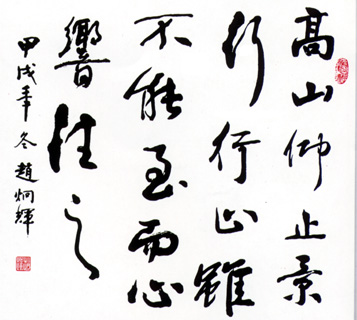 高山仰止景
行行止雖
不能至而心
響往之
甲戌年冬趙炯輝